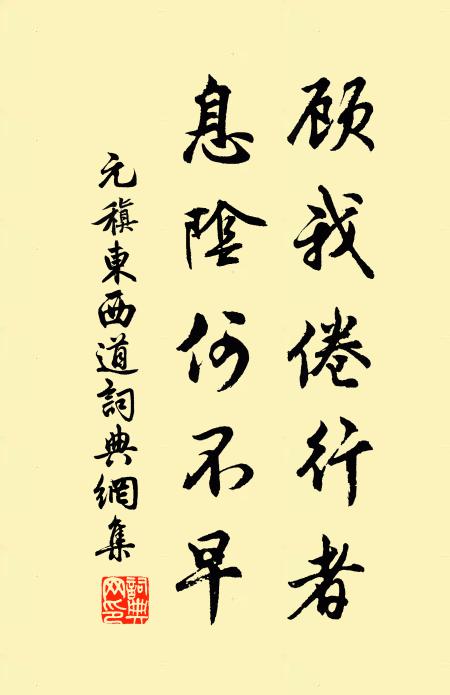 顾我倦行者
息陰何不早
元稹東西道詞典網集
詞典
网印